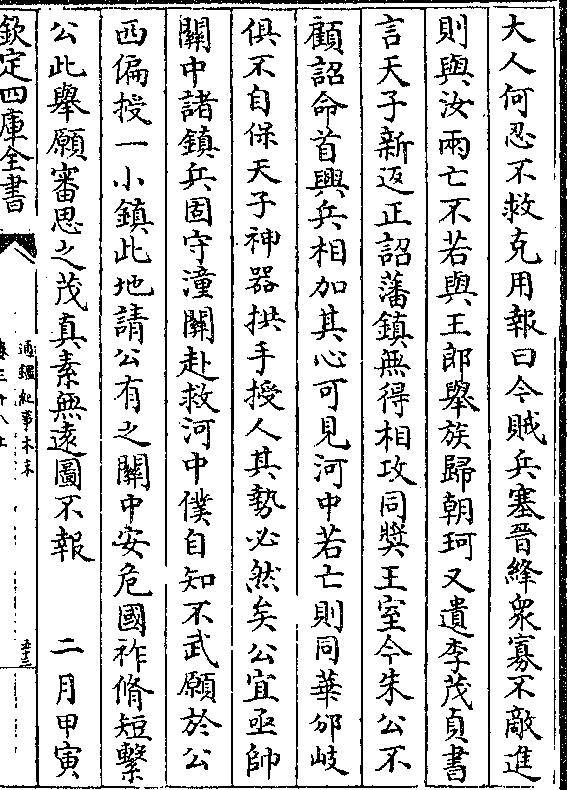 大人何忍不救克用報曰今賊兵塞晉絳衆寡不敵進
則與汝兩亡不若與王郎舉族歸朝珂又遺李茂貞書
言天子新返正詔藩鎮無得相攻同奬王室今朱公不
顧詔命首興兵相加其心可見河中若亡則同華邠岐
俱不自保天子神器拱手授人其勢必然矣公宜亟帥
關中諸鎮兵固守潼關赴救河中僕自知不武願於公
西偏授一小鎮此地請公有之關中安危國祚脩短繫
公此舉願審思之茂真素無遠圖不報　二月甲寅
欽定四庫全書
通鑑紀事本末
卷三十八上
五十三